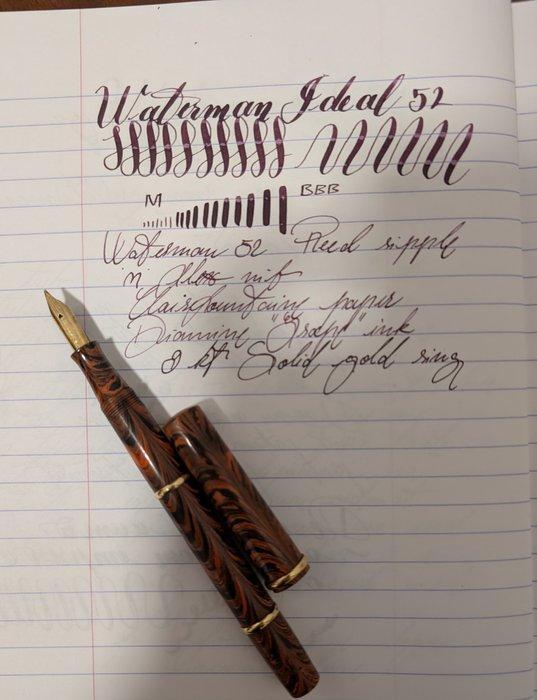 Waterman Ideal 52
M BBB
Waterman 52 Reed ripple
M flex nib
Clairefontaine paper
Diamine "Grape" ink
8 kt Solid gold ring